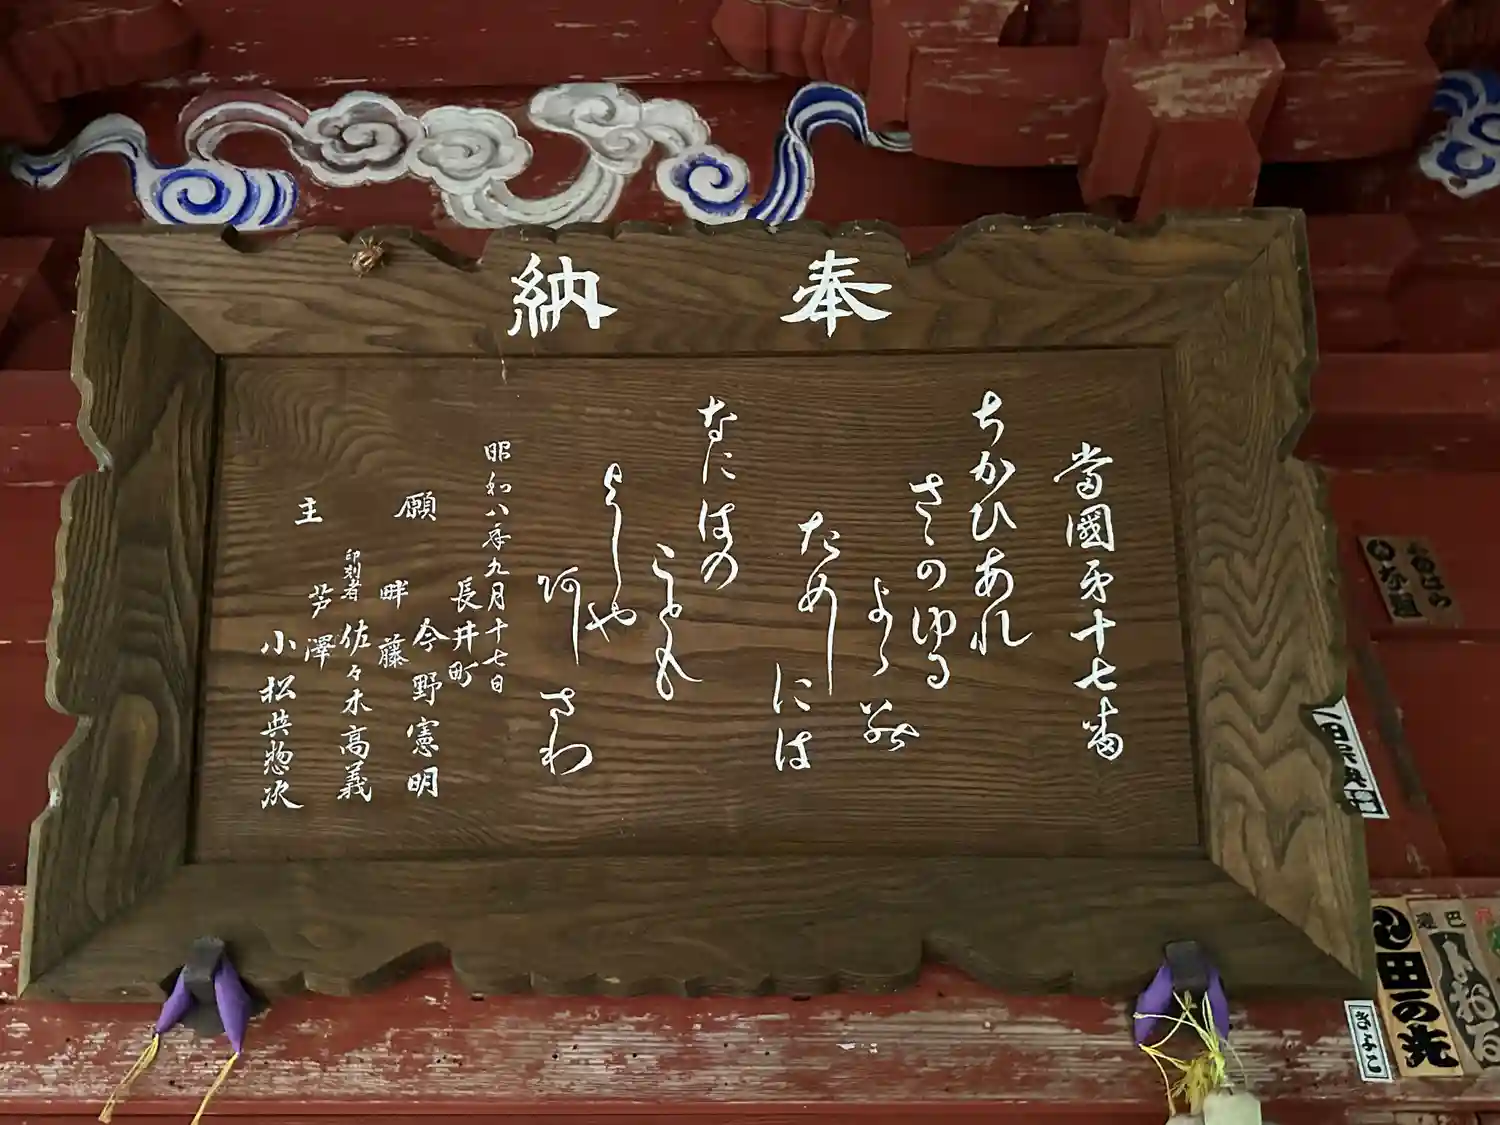 奉納
當國第十七番
ちかひあれ
さゝのゆる
ためしには
なにはの
ことも
よしや
阿しさわ
昭和八年九月十七日
願主
長井町
今野憲明
畔藤
佐々木高義
印刻者
芦澤
小松與惣次
きよこ